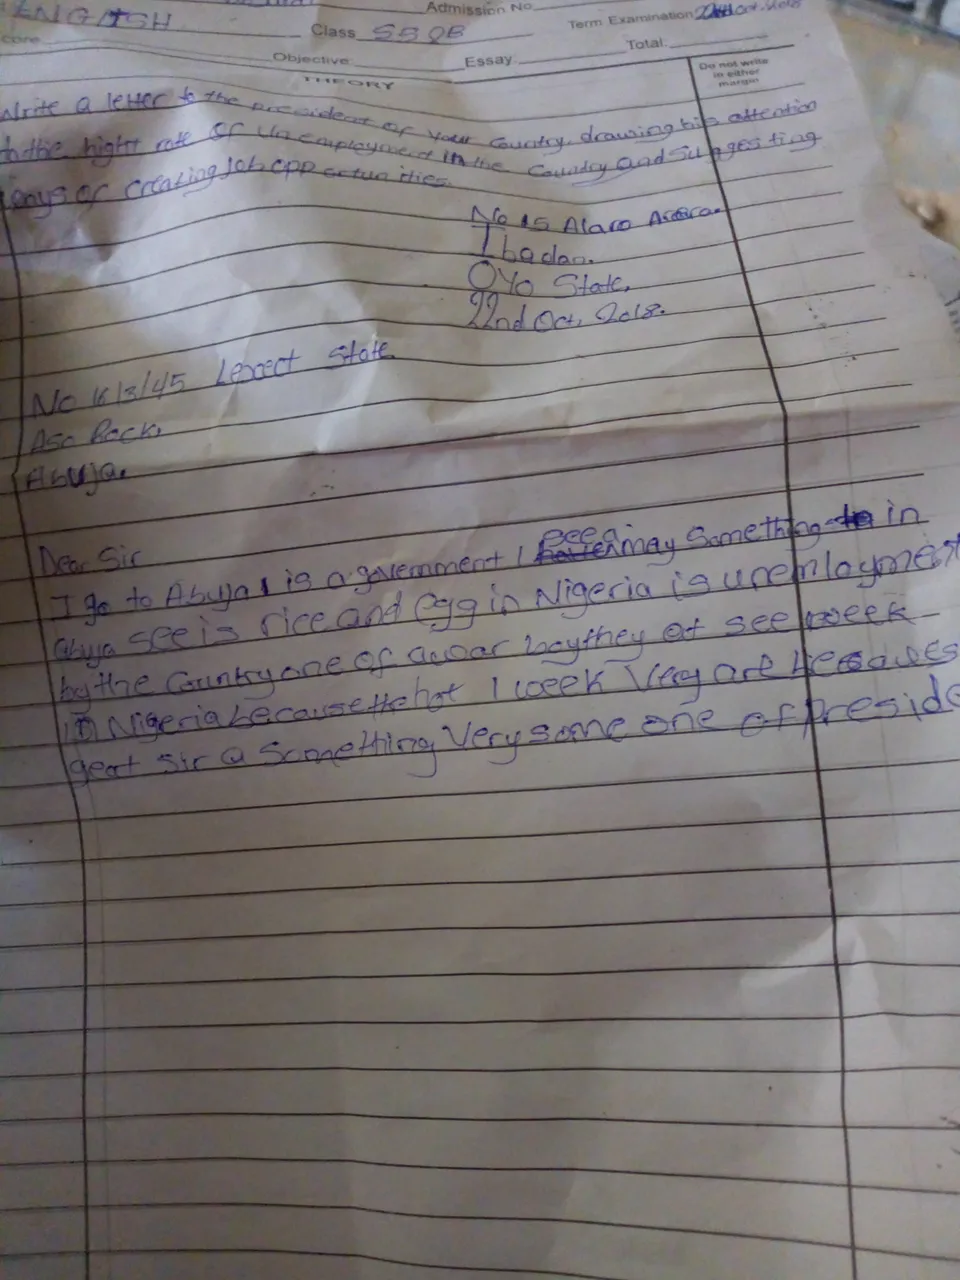 ENGLISH Admission No
Class SS 2B Term Examination 22nd Oct, 2018
core Objective Essay Total
THEORY Do not write in either margin
Write a letter to the president of your Country, drawing his attention
to the hight rate of Unemployment in the Country and Suggesting
ways of creating Job opportunities.
No 15 Alaro
Ibadan.
Oyo State,
22nd Oct, 2018.
No 16/3/45 State.
Aso Rock,
Abuja.
Dear Sir
I go to Abuja, is a government I been may Something in
abuja see is rice and egg in Nigeria is unemlayment
by the Country one of they at see week
in Nigeria because the hot I week Very are
geat Sir a Something Very some one of preside